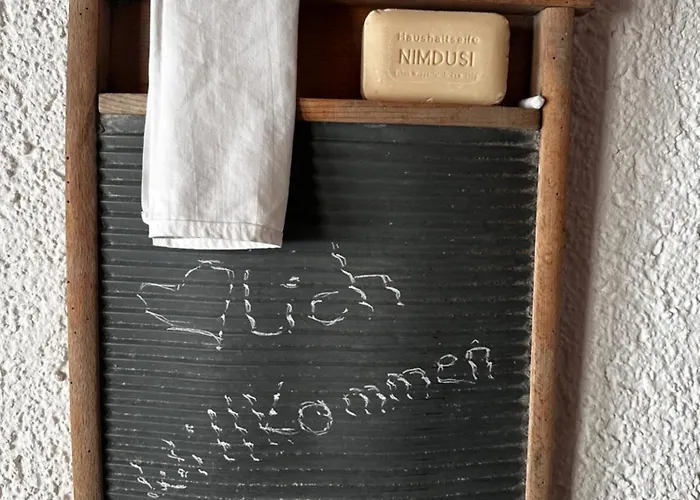 Haushaltseife
NIMDUSI
♡lich
Willkommen